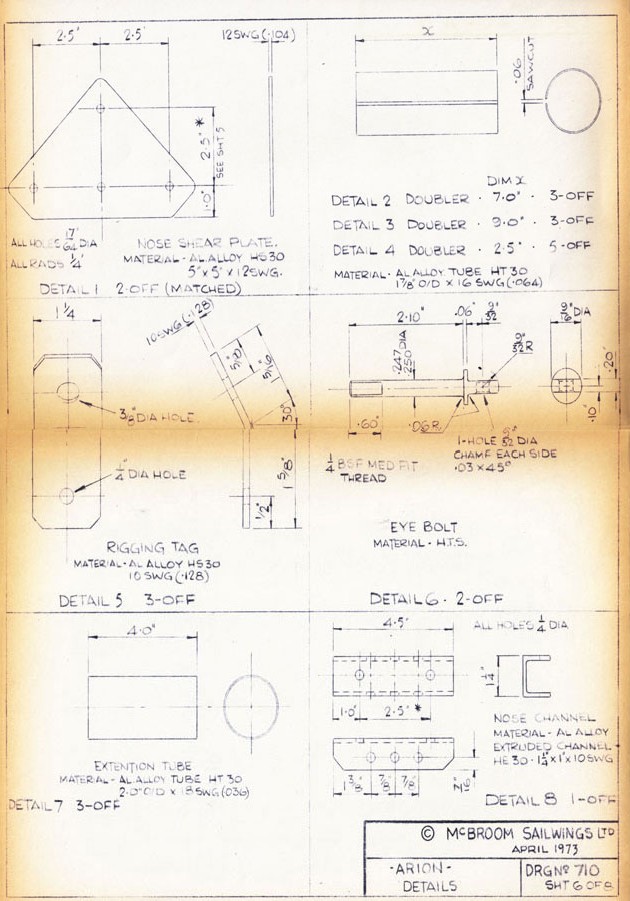 2.5" 2.5"
12SWG (.104)
2.5" *
SEE SHT 5
1.0"
ALL HOLES 17/64" DIA
ALL RADS 1/4"
NOSE SHEAR PLATE.
MATERIAL - AL ALLOY HS30
5" x 5" x 12SWG.
DETAIL 1 2-OFF (MATCHED)
x
.06
SAWCUT
DIM x
DETAIL 2 DOUBLER · 7.0" · 3-OFF
DETAIL 3 DOUBLER · 9.0" · 3-OFF
DETAIL 4 DOUBLER · 2.5" · 5-OFF
MATERIAL - AL ALLOY TUBE HT 30
1 7/8" O/D x 16 SWG (.064)
1 1/4
10SWG (.128)
30°
3/8 DIA HOLE.
1/4" DIA HOLE
1 5/8"
1/2"
RIGGING TAG
MATERIAL - AL ALLOY HS30
10 SWG (.128)
DETAIL 5 3-OFF
2.10" .06" 9/32
9/16 DIA
.247 DIA
.250
9/32 R
.20"
.10"
.60"
.06R
1-HOLE 9/32 DIA
CHAMF EACH SIDE
.03 x 45°
1/4 BSF MED FIT
THREAD
EYE BOLT
MATERIAL - H.T.S.
DETAIL 6 · 2-OFF
4.0"
EXTENTION TUBE
MATERIAL - AL ALLOY TUBE HT 30
2.0" O/D x 18 SWG (036)
DETAIL 7 3-OFF
4.5"
ALL HOLES 1/4 DIA
1 1/4"
1.0" 2.5" *
1 3/8" 7/8" 7/8"
NOSE CHANNEL
MATERIAL - AL ALLOY
EXTRUDED CHANNEL -
HE 30 - 1 1/4" x 1" x 10 SWG
DETAIL 8 1-OFF
© McBROOM SAILWINGS LTD
APRIL 1973
- ARION -
DETAILS
DRG Nº 710
SHT 6 OF 8